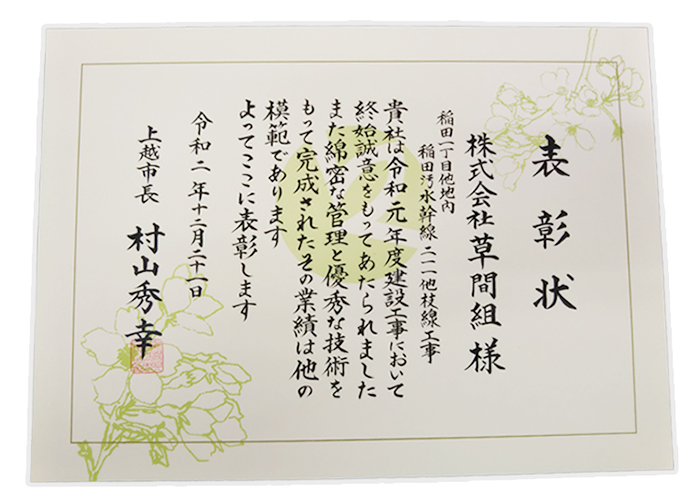 表彰状
株式会社草間組様
稲田一丁目他地内
稲田汚水幹線二一一他枝線工事
貴社は令和元年度建設工事において
終始誠意をもってあたられました
また綿密な管理と優秀な技術を
もって完成されたその業績は他の
模範であります
よってここに表彰します
令和二年十二月二十一日
上越市長 村山秀幸